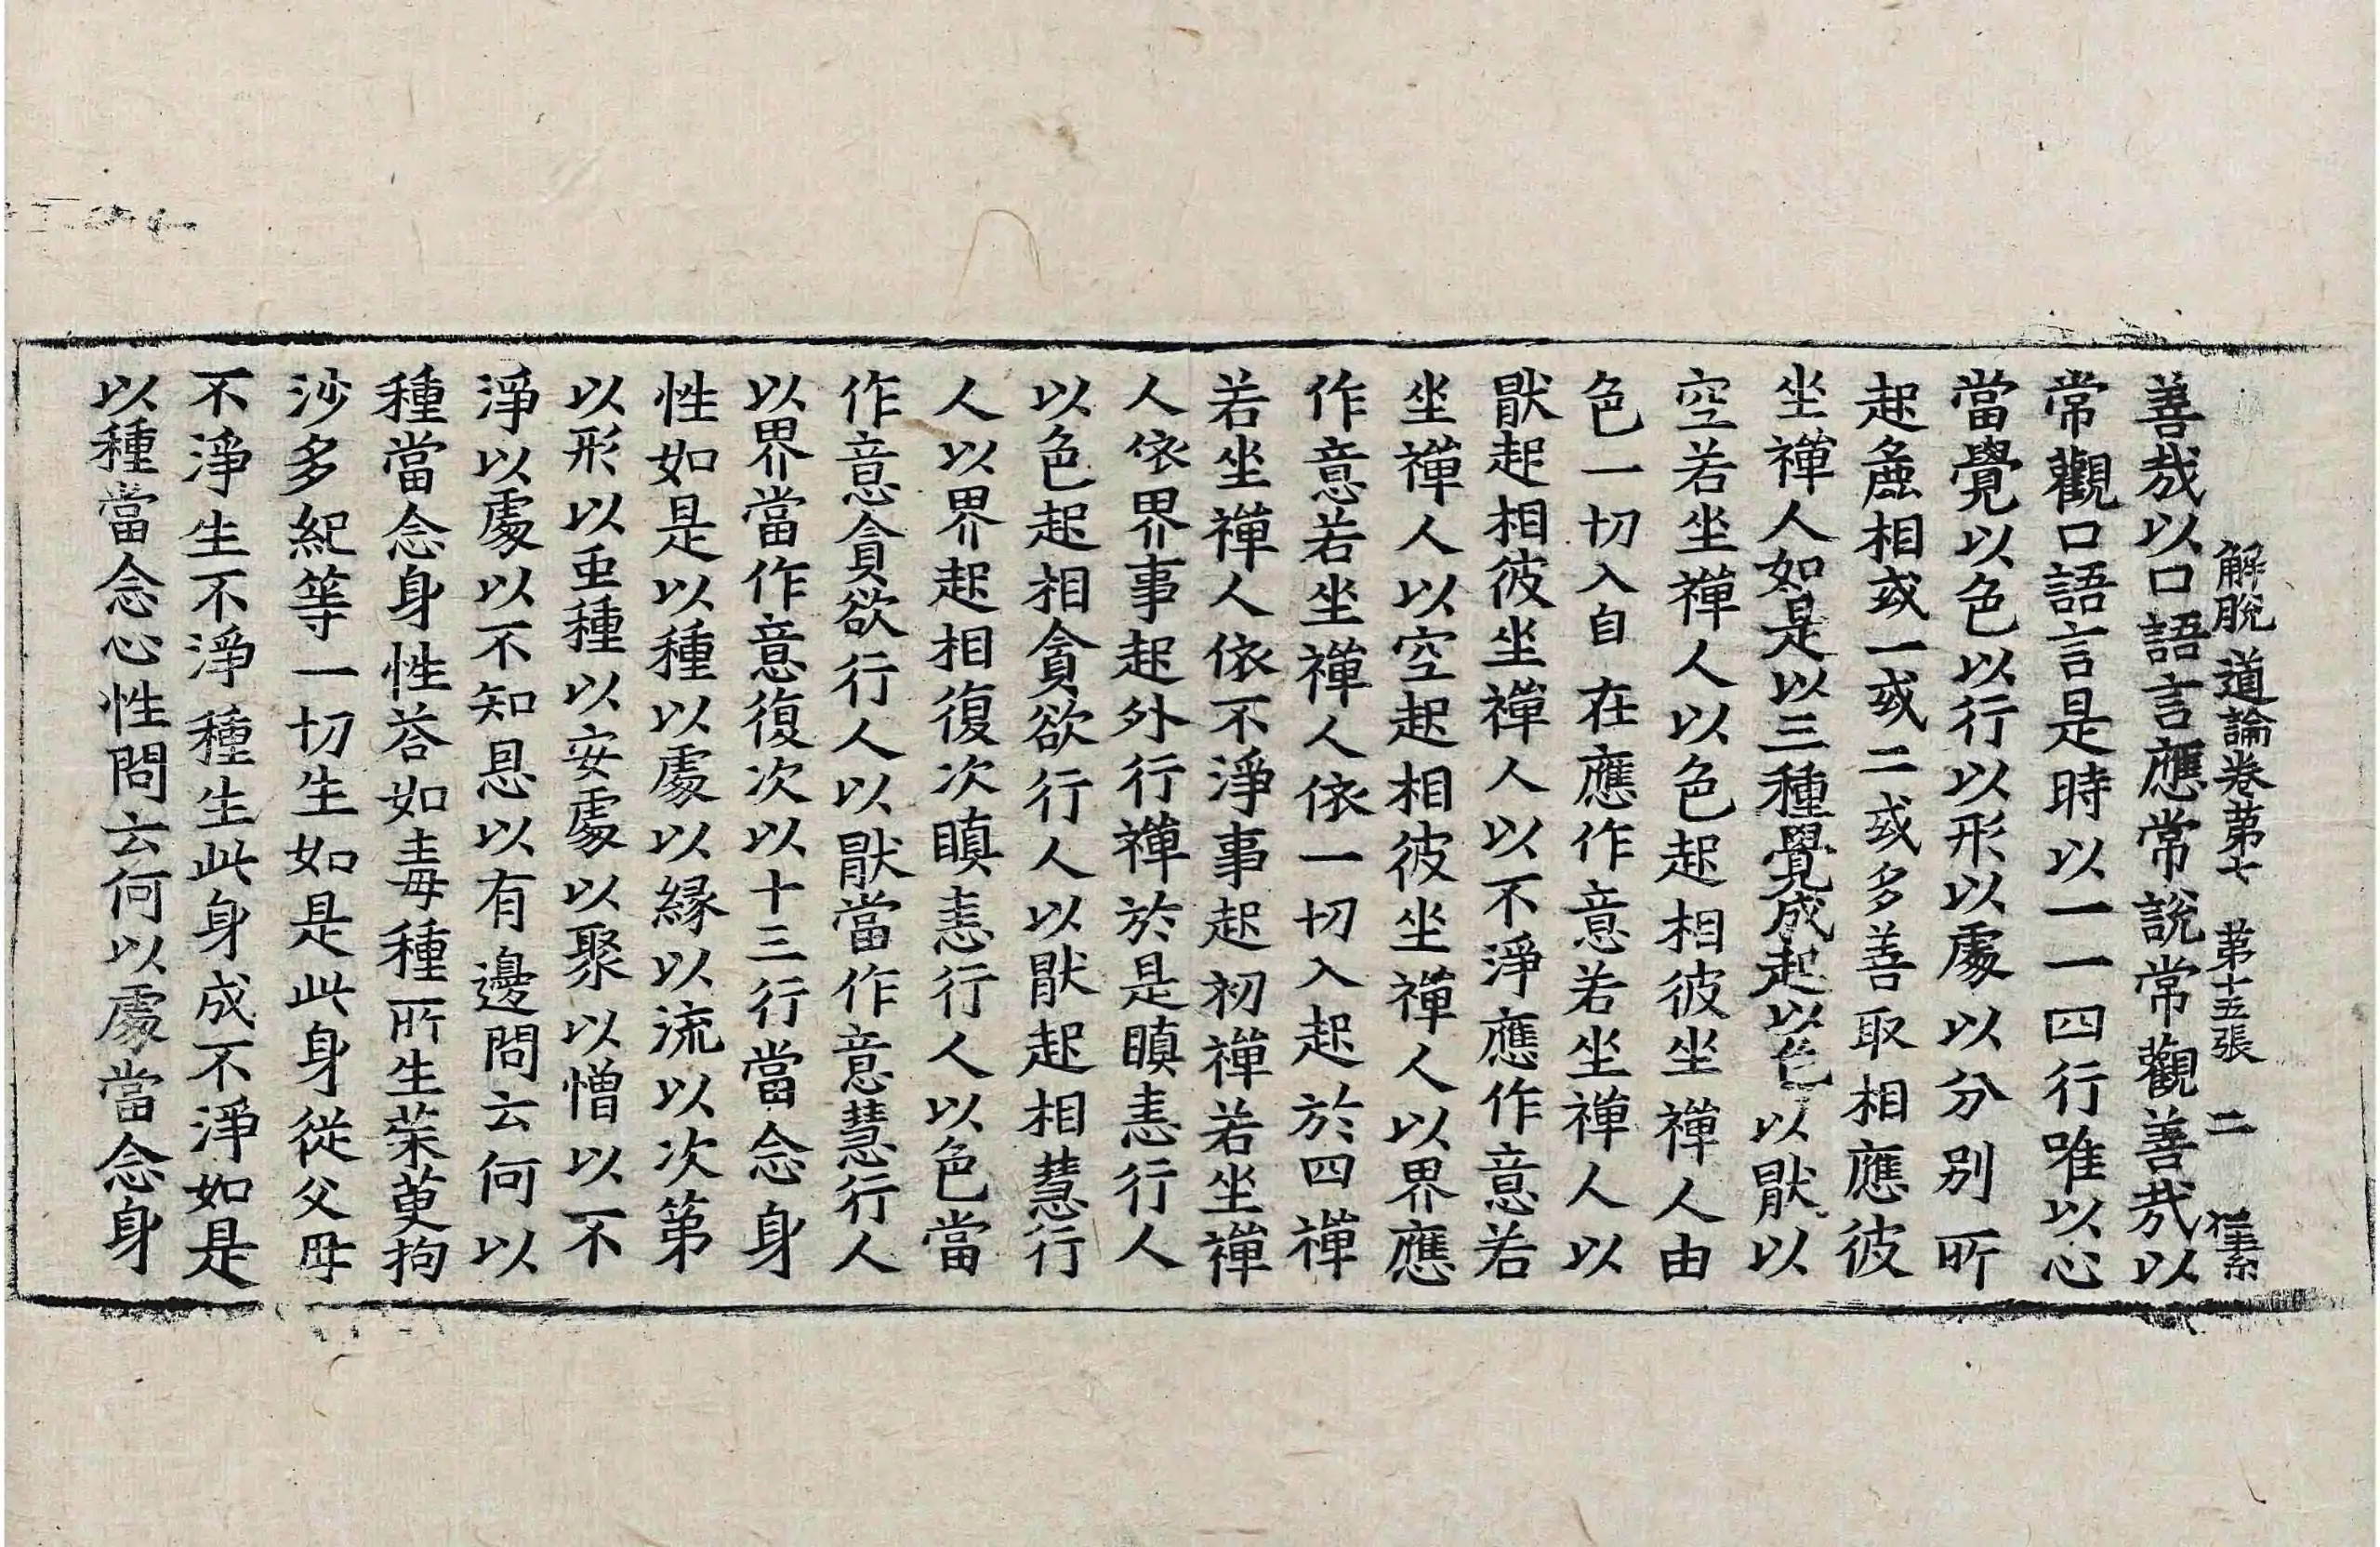 解脫道論卷第七 第十五張 二
善㢤以口語言應常說常觀善㢤以
常觀口語言是時以一一四行唯以心
當覺以色以行以形以處以分别所
起麁相或一或二或多善取相應彼
坐禪人如是以三種覺成起以色以猒以
空若坐禪人以色起相彼坐禪人由
色一切入自在應作意若坐禪人以
猒起相彼坐禪人以不淨應作意若
坐禪人以空起相彼坐禪人以界應
作意若坐禪人依一切入起於四禪
若坐禪人依不淨事起初禪若坐禪
人依界事起外行禪於是瞋恚行人
以色起相貪欲行人以猒起相慧行
人以界起相復次瞋恚行人以色當
作意貪欲行人以猒當作意慧行人
以界當作意復次以十三行當念身
性如是以種以處以緣以流以次第
以形以虫種以安處以聚以憎以不
淨以處以不知恩以有邊問云何以
種當念身性荅如毒種所生茱萸拘
沙多紀等一切生如是此身從父母
不淨生不淨種生此身成不淨如是
以種當念心性問云何以處當念身